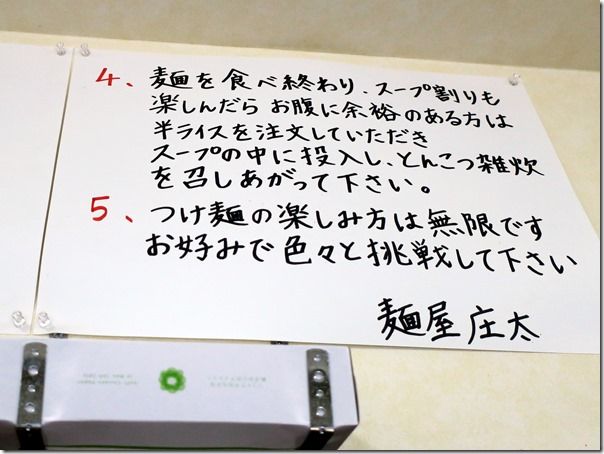 4、麺を食べ終わり、スープ割りも
楽しんだら お腹に余裕のある方は
半ライスを注文していただき
スープの中に投入し、とんこつ雑炊
を召しあがって下さい。
5、つけ麺の楽しみ方は無限です
お好みで色々と挑戦して下さい
麺屋 庄太